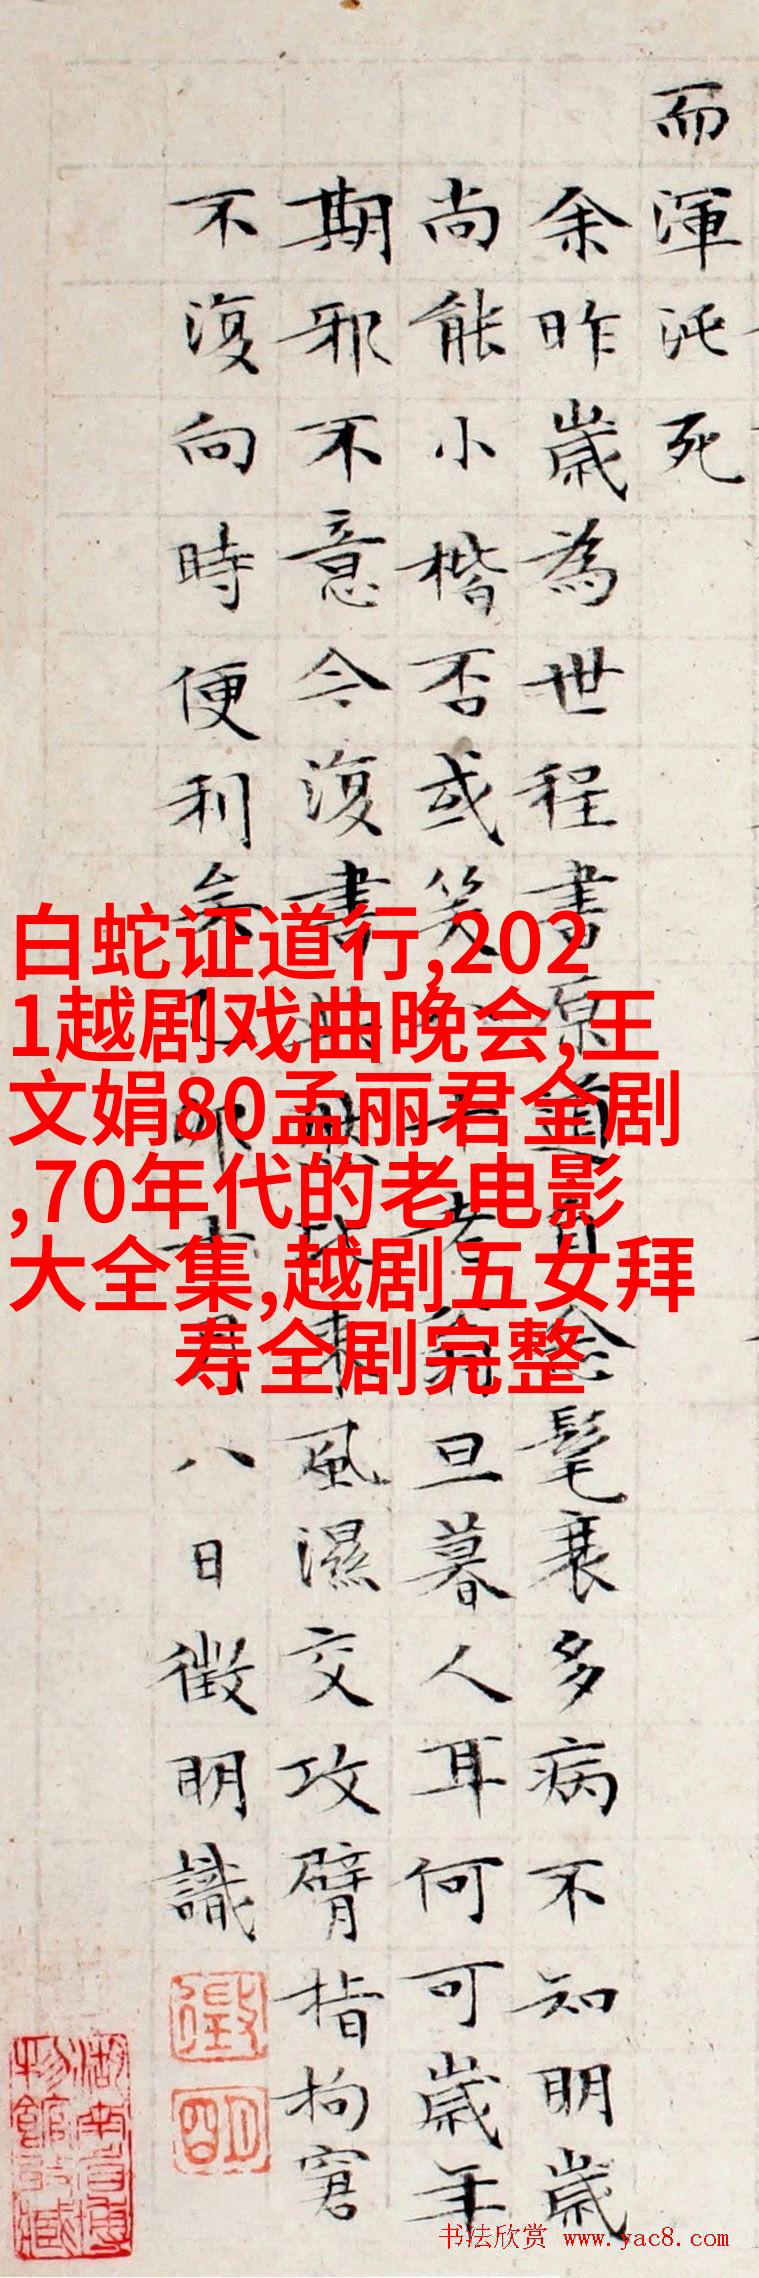 而渾沌死
余昨歲為世程書原道自念髦衰多病不知明歲
尚能小楷否或笑老翁旦暮人耳何可歲年
期邪不意今復書此然東風濕交攻臂指拘窘
不復向時便利矣乙卯十月八日徵明識
徵
明
白蛇证道行,202
1越剧戏曲晚会,王
文娟80孟丽君全剧
,70年代的老电影
大全集,越剧五女拜
寿全剧完整
书法欣赏 www.yac8.com